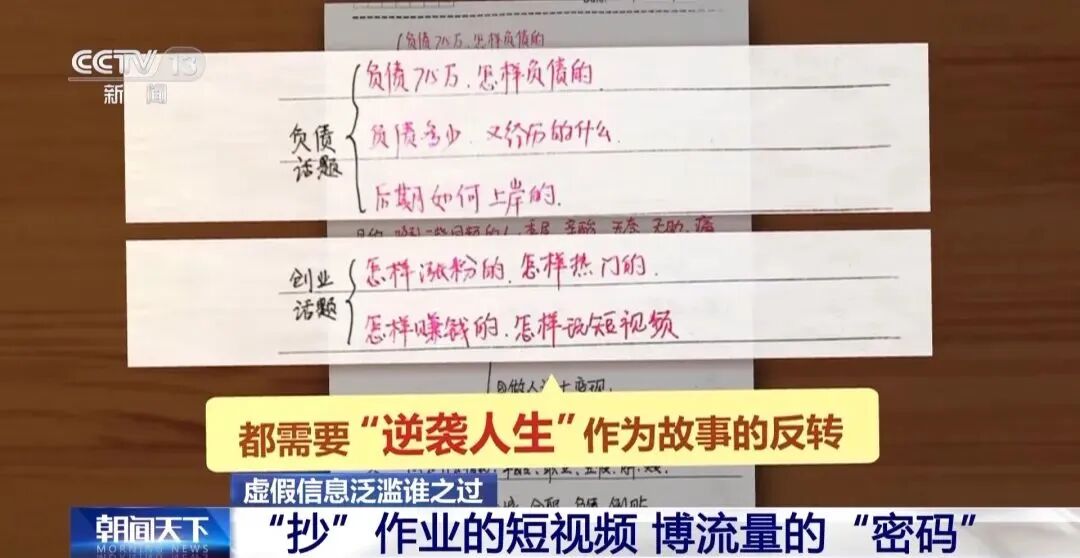 CCTV 13
新闻
负债75万、怎样负债的
负债话题
负债75万、怎样负债的、
负债多少、又经历的什么、
后期如何上岸的、
创业话题
怎样涨粉的、怎样热门的、
怎样赚钱的、怎样玩短视频
都需要“逆袭人生”作为故事的反转
虚假信息泛滥谁之过
朝闻天下
MORNING NEWS
“抄”作业的短视频 博流量的“密码”